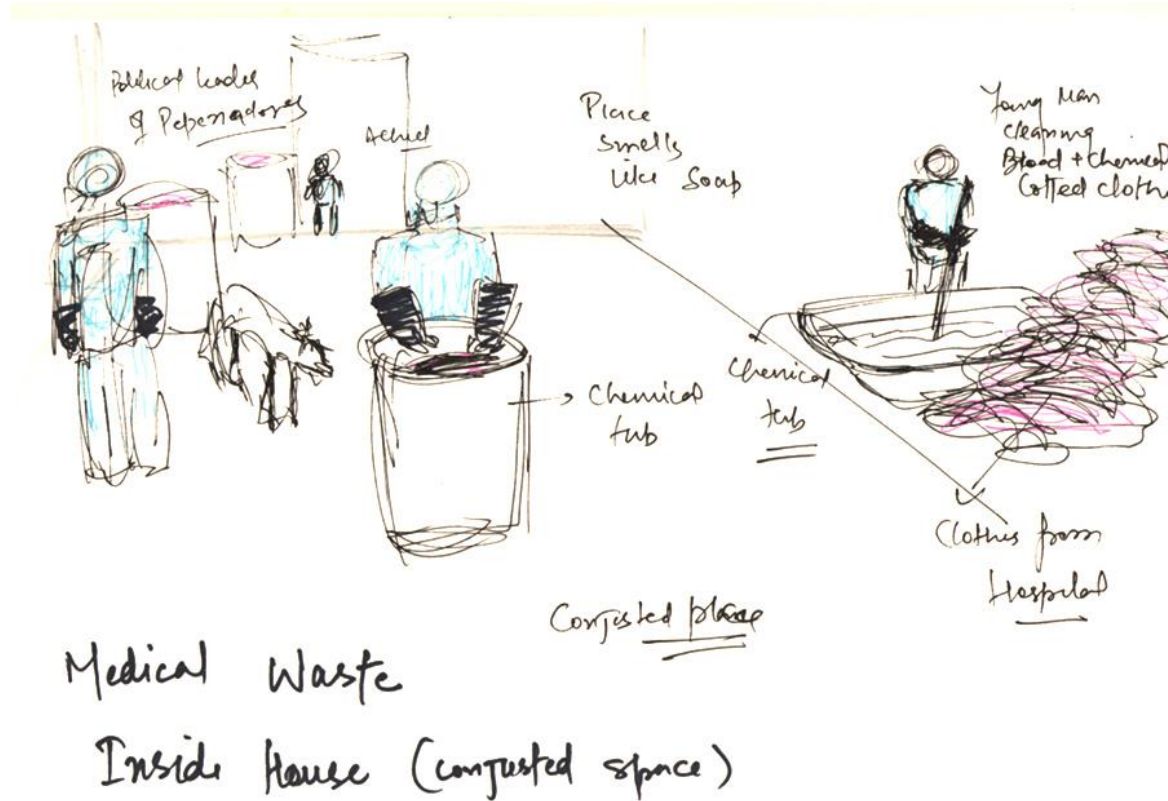 Political leader
of Pepenadores
Place
smells
like Soap
Young Man
cleaning
Blood + Chemical
Cotted cloth
Chemical
tub
Chemical
tub
Clothes from
Hospital
Conjusted place
Medical Waste
Inside House (conjusted space)